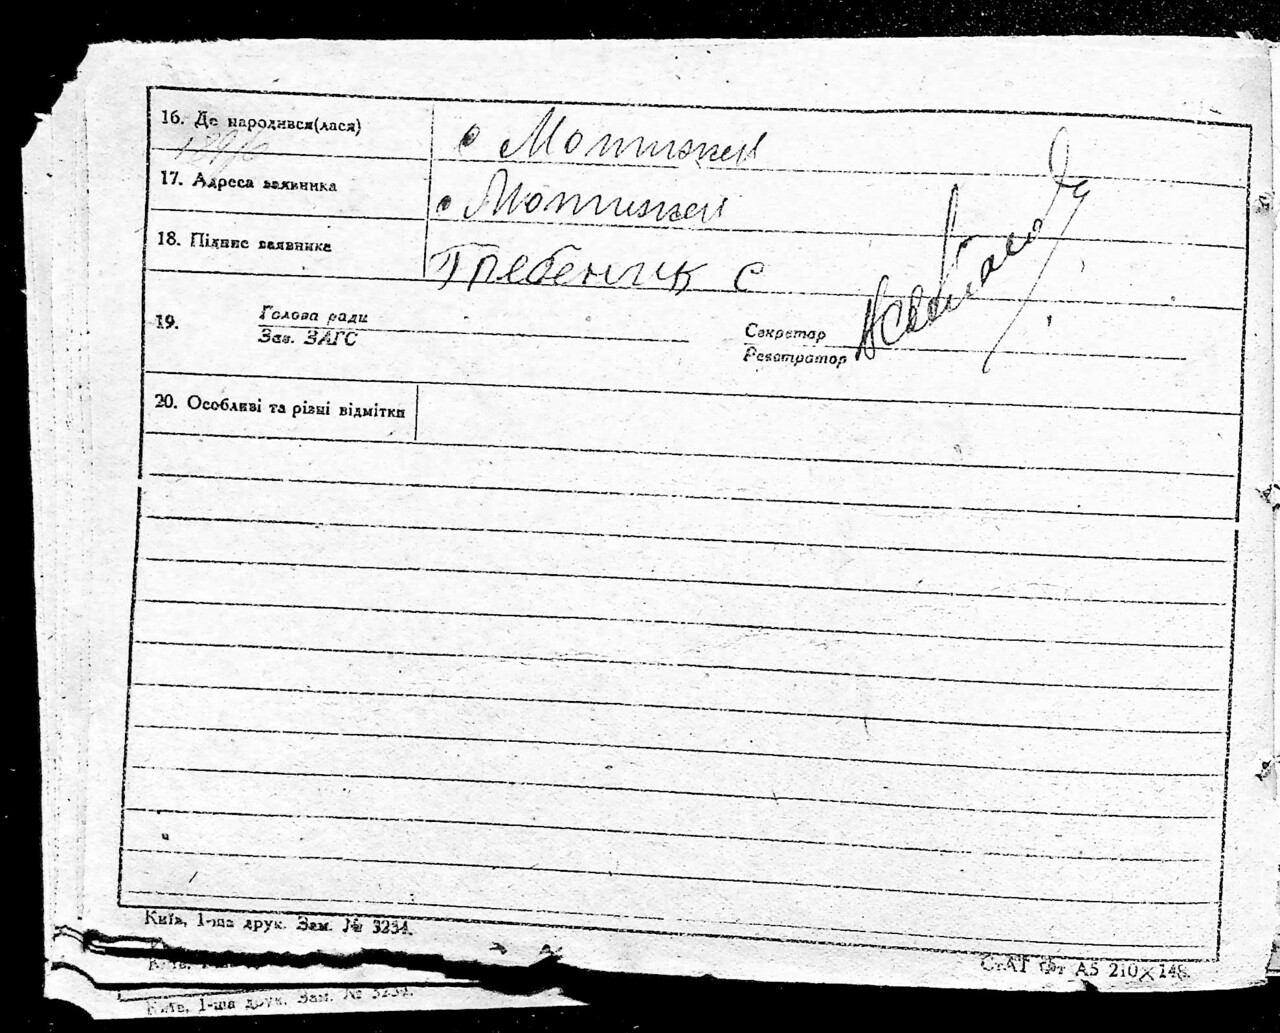 16. Де народився(лася) с Мотижин
1896
17. Адреса заявника с Мотижин
18. Підпис заявника Гребеник С
19. Голова ради
Зав. ЗАГС
Секретар
Реєстратор
20. Особливі та різні відмітки
Київ, 1-ша друк. Зам. № 3234.
СтАТ Фт А5 210×148.
Київ, 1-ша друк. Зам. № 3234.